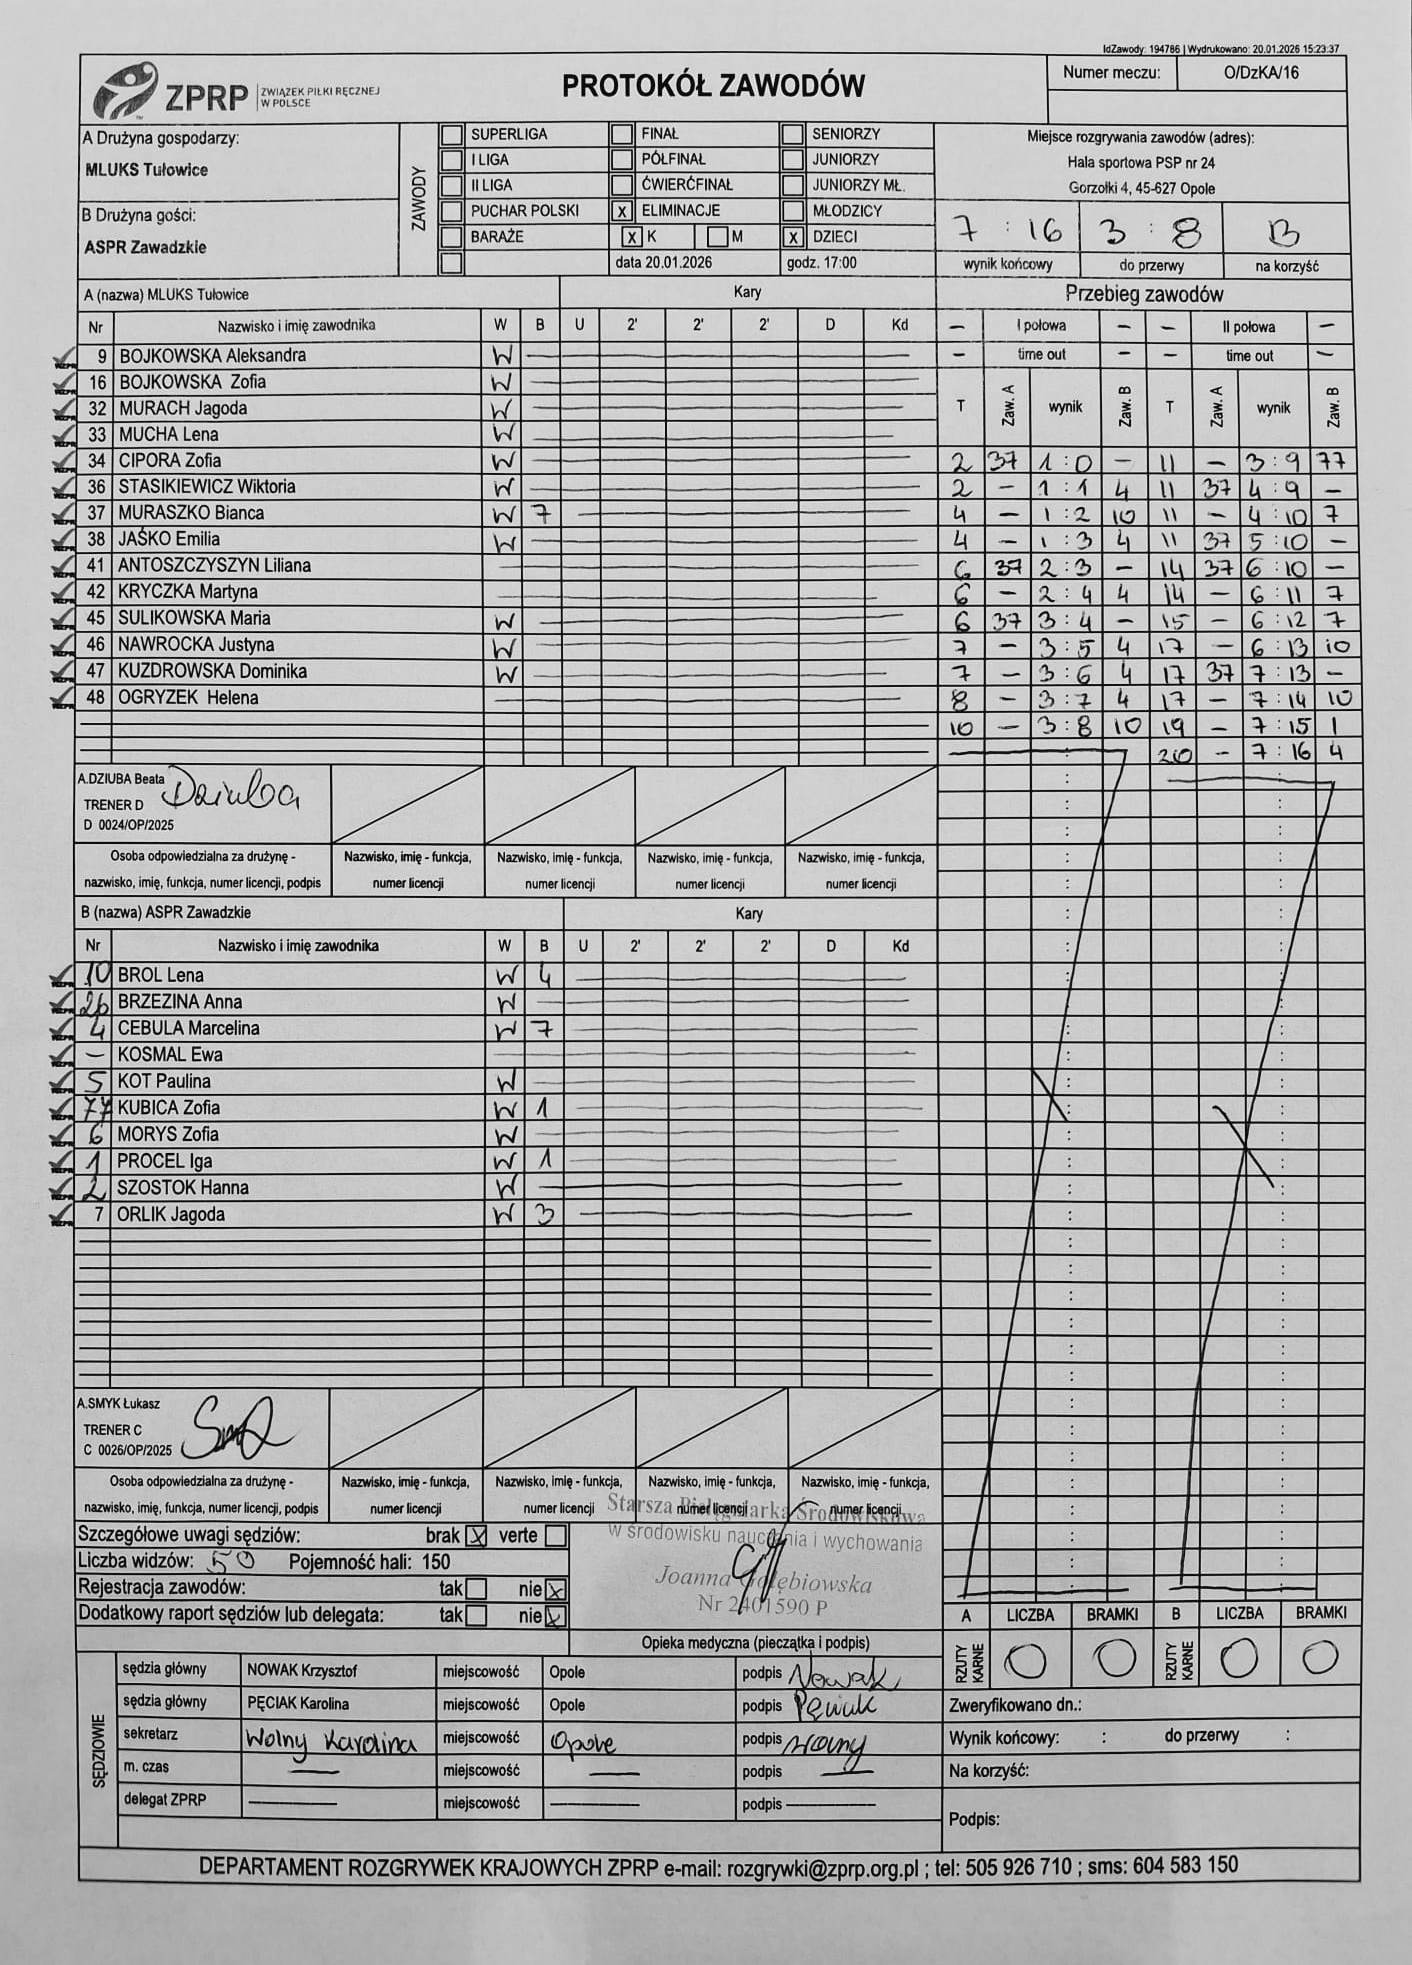 IdZawody: 194786 | Wydrukowano: 20.01.2026 15:23:37
ZPRP ZWIĄZEK PIŁKI RĘCZNEJ W POLSCE
PROTOKÓŁ ZAWODÓW
Numer meczu: O/DzKA/16
A Drużyna gospodarzy:
MLUKS Tułowice
B Drużyna gości:
ASPR Zawadzkie
ZAWODY
SUPERLIGA FINAŁ SENIORZY
I LIGA PÓŁFINAŁ JUNIORZY
II LIGA ĆWIERĆFINAŁ JUNIORZY MŁ.
PUCHAR POLSKI X ELIMINACJE MŁODZICY
BARAŻE X K M X DZIECI
data 20.01.2026 godz. 17:00
Miejsce rozgrywania zawodów (adres):
Hala sportowa PSP nr 24
Gorzołki 4, 45-627 Opole
7 : 16 3 : 8 B
wynik końcowy do przerwy na korzyść
A (nazwa) MLUKS Tułowice Kary
Nr Nazwisko i imię zawodnika W B U 2' 2' 2' D Kd
9 BOJKOWSKA Aleksandra W
16 BOJKOWSKA Zofia W
32 MURACH Jagoda W
33 MUCHA Lena W
34 CIPORA Zofia W
36 STASIKIEWICZ Wiktoria W
37 MURASZKO Bianca W 7
38 JAŚKO Emilia W
41 ANTOSZCZYSZYN Liliana
42 KRYCZKA Martyna
45 SULIKOWSKA Maria W
46 NAWROCKA Justyna W
47 KUZDROWSKA Dominika W
48 OGRYZEK Helena
A.DZIUBA Beata Dziuba
TRENER D
D 0024/OP/2025
Osoba odpowiedzialna za drużynę - Nazwisko, imię - funkcja, Nazwisko, imię - funkcja, Nazwisko, imię - funkcja, Nazwisko, imię - funkcja,
nazwisko, imię, funkcja, numer licencji, podpis numer licencji numer licencji numer licencji numer licencji
B (nazwa) ASPR Zawadzkie Kary
Nr Nazwisko i imię zawodnika W B U 2' 2' 2' D Kd
10 BROL Lena W 4
26 BRZEZINA Anna W
4 CEBULA Marcelina W 7
– KOSMAL Ewa
5 KOT Paulina W
77 KUBICA Zofia W 1
6 MORYS Zofia W
1 PROCEL Iga W 1
2 SZOSTOK Hanna W
7 ORLIK Jagoda W 3
A.SMYK Łukasz
TRENER C
C 0026/OP/2025
Osoba odpowiedzialna za drużynę - Nazwisko, imię - funkcja, Nazwisko, imię - funkcja, Nazwisko, imię - funkcja, Nazwisko, imię - funkcja,
nazwisko, imię, funkcja, numer licencji, podpis numer licencji numer licencji numer licencji numer licencji
Przebieg zawodów
– I połowa – – II połowa –
– time out – – time out –
T Zaw. A wynik Zaw. B T Zaw. A wynik Zaw. B
2 37 1 : 0 – 11 – 3 : 9 77
2 – 1 : 1 4 11 37 4 : 9 –
4 – 1 : 2 10 11 – 4 : 10 7
4 – 1 : 3 4 11 37 5 : 10 –
6 37 2 : 3 – 14 37 6 : 10 –
6 – 2 : 4 4 14 – 6 : 11 7
6 37 3 : 4 – 15 – 6 : 12 7
7 – 3 : 5 4 17 – 6 : 13 10
7 – 3 : 6 4 17 37 7 : 13 –
8 – 3 : 7 4 17 – 7 : 14 10
10 – 3 : 8 10 19 – 7 : 15 1
20 – 7 : 16 4
Szczegółowe uwagi sędziów: brak X verte
Liczba widzów: 50 Pojemność hali: 150
Rejestracja zawodów: tak nie X
Dodatkowy raport sędziów lub delegata: tak nie X
Starsza Pielęgniarka Środowiskowa
w środowisku nauczania i wychowania
Joanna Gołębiowska
Nr 2401590 P
Opieka medyczna (pieczątka i podpis)
A LICZBA BRAMKI B LICZBA BRAMKI
RZUTY KARNE 0 0 RZUTY KARNE 0 0
SĘDZIOWIE
sędzia główny NOWAK Krzysztof miejscowość Opole podpis Nowak
sędzia główny PĘCIAK Karolina miejscowość Opole podpis Pęciak
sekretarz Wolny Karolina miejscowość Opole podpis Wolny
m. czas — miejscowość — podpis —
delegat ZPRP — miejscowość — podpis —
Zweryfikowano dn.:
Wynik końcowy: : do przerwy :
Na korzyść:
Podpis:
DEPARTAMENT ROZGRYWEK KRAJOWYCH ZPRP e-mail: rozgrywki@zprp.org.pl ; tel: 505 926 710 ; sms: 604 583 150